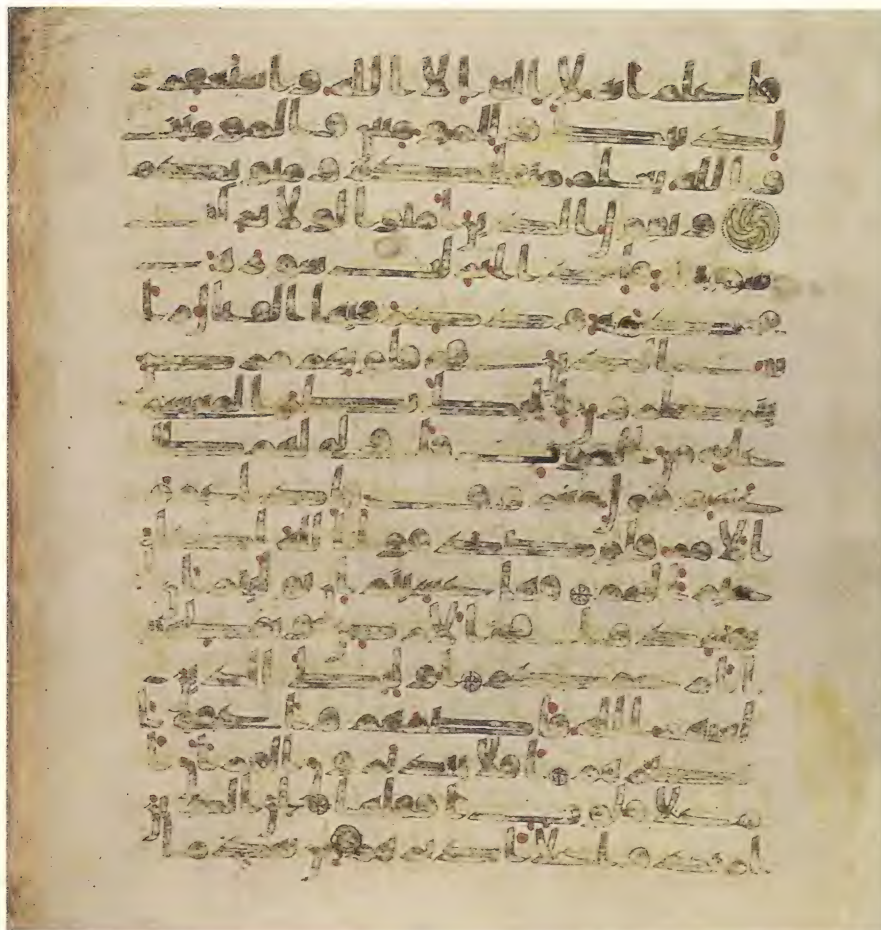 فاعلم انه لا اله الا الله واستغفر
لذنبك وللمومنين والمومنت
والله يعلم متقلبكم ومثويكم
ويقول الذين امنوا لولا نزلت
سورة فاذا انزلت سورة
محكمة وذكر فيها القتال را
يت الذين في قلوبهم مرض
ينظرون اليك نظر المغشي
عليه من الموت فاولى لهم طا
عة وقول معروف فاذا عزم
الامر فلو صدقوا الله لكان
خيرا لهم فهل عسيتم ان توليتم ان
تفسدوا في الارض وتقطعوا
ارحامكم اولئك الذين
لعنهم الله فاصمهم واعمى ا
بصرهم افلا يتدبرون القران ا
م على قلوب اقفالها ان الذين ار
تدوا على ادبرهم من بعد ما